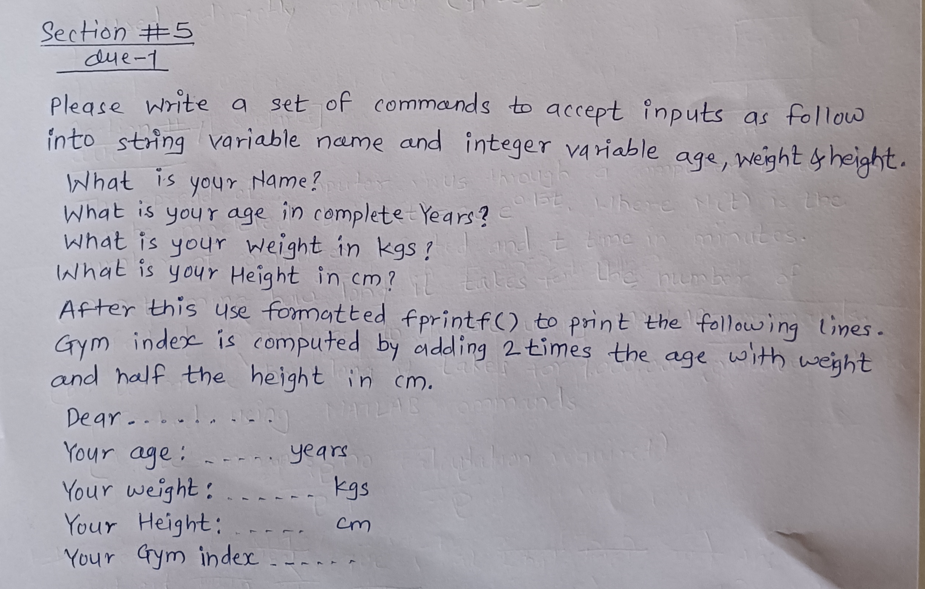 Section #5
due-1
Please write a set of commands to accept inputs as follow
into string variable name and integer variable age, weight & height.
What is your Name?
What is your age in complete Years?
What is your weight in kgs?
What is your Height in cm?
After this use formatted fprintf() to print the following lines.
Gym index is computed by adding 2 times the age with weight
and half the height in cm.
Dear..........
Your age: ...... years
Your weight: ....... kgs
Your Height: ..... cm
Your Gym index .......